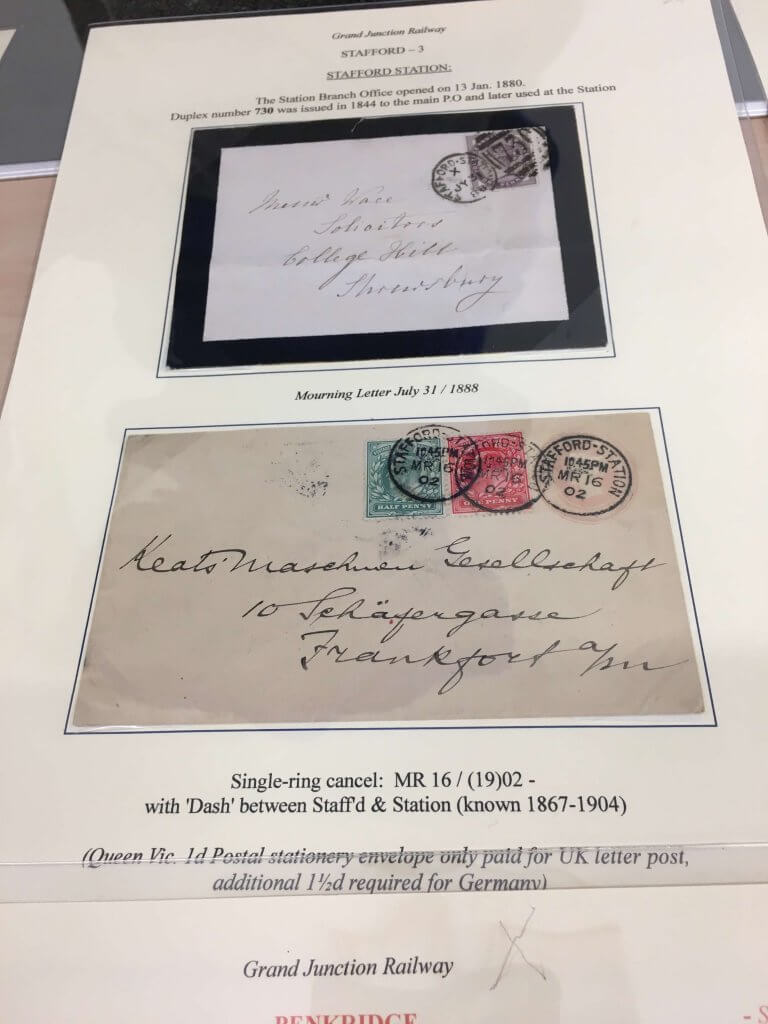 Grand Junction Railway
STAFFORD – 3
STAFFORD STATION:
The Station Branch Office opened on 13 Jan. 1880.
Duplex number 730 was issued in 1844 to the main P.O and later used at the Station
STAFFORD-S
X
JY
Messrs
Solicitors
College Hill
Shrewsbury
Mourning Letter July 31 / 1888
STAFFORD-STA
10.45PM
MR 16
02
HALF PENNY
FORD-ST
10.45PM
MR 16
02
ONE PENNY
STAFFORD-STATION
10.45PM
MR 16
02
Keats Maschinen Gesellschaft
10 Schäfergasse
Frankfort a/m
Single-ring cancel: MR 16 / (19)02 -
with 'Dash' between Staff'd & Station (known 1867-1904)
(Queen Vic. 1d Postal stationery envelope only paid for UK letter post,
additional 1½d required for Germany)
Grand Junction Railway
X
PENKRIDGE
- S